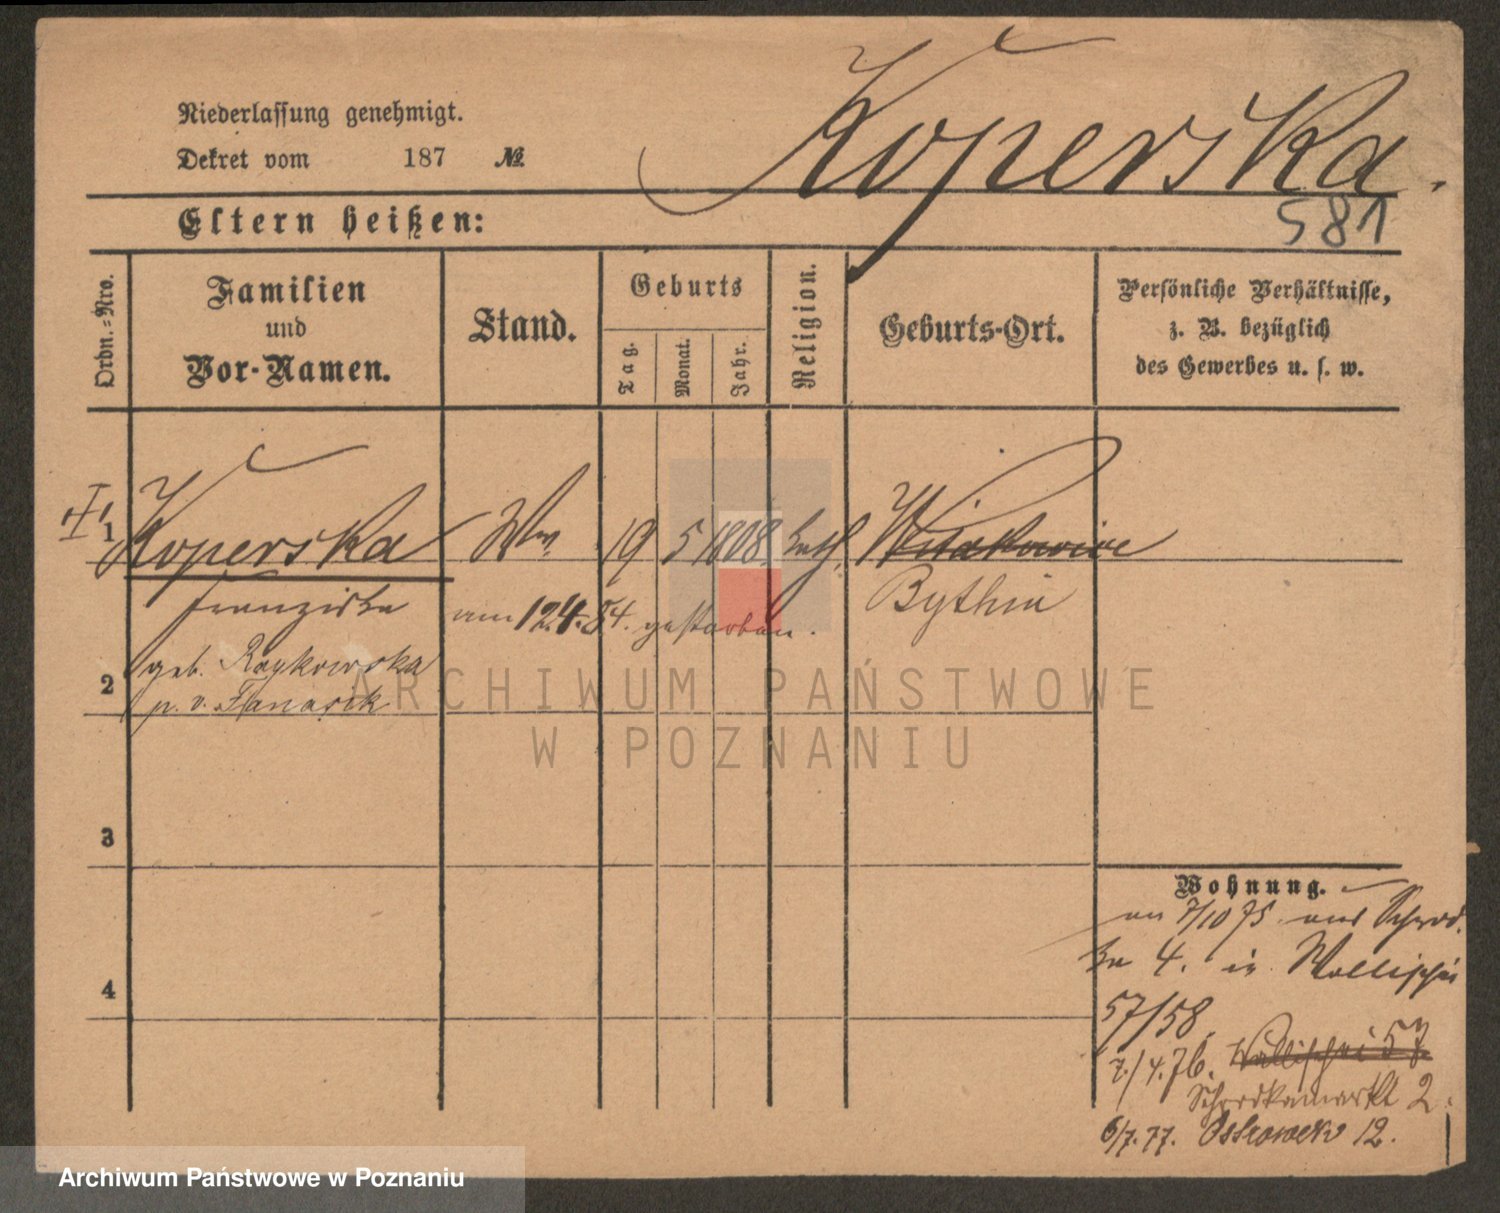 Koperska.
Niederlassung genehmigt.
Dekret vom 187 №
581
Eltern heißen:
Ordn.-Nro.
Familien
und
Vor-Namen.
Stand.
Geburts
Tag.
Monat.
Jahr.
Religion.
Geburts-Ort.
Persönliche Verhältnisse,
z. B. bezüglich
des Gewerbes u. s. w.
1 Koperska Ww. 19 5 1808. kath. Witakowice
Franziska am 12.4.84. gestorben. Bythin
2 geb. Raykowska
p. v. Fanasik
ARCHIWUM PAŃSTWOWE
W POZNANIU
3
4
Wohnung.
an 7/10 75. aus Schrod.
ka 4. in Wallischei
57/58.
7./4.76. Wallischei 57
Schrodkamarkt 2.
6/7.77. Ostrowek 12.
Archiwum Państwowe w Poznaniu